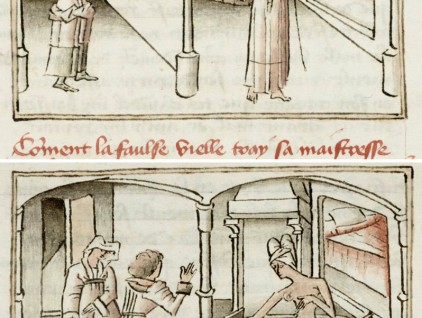 Com̃ent la faulse vielle tray sa maistresse